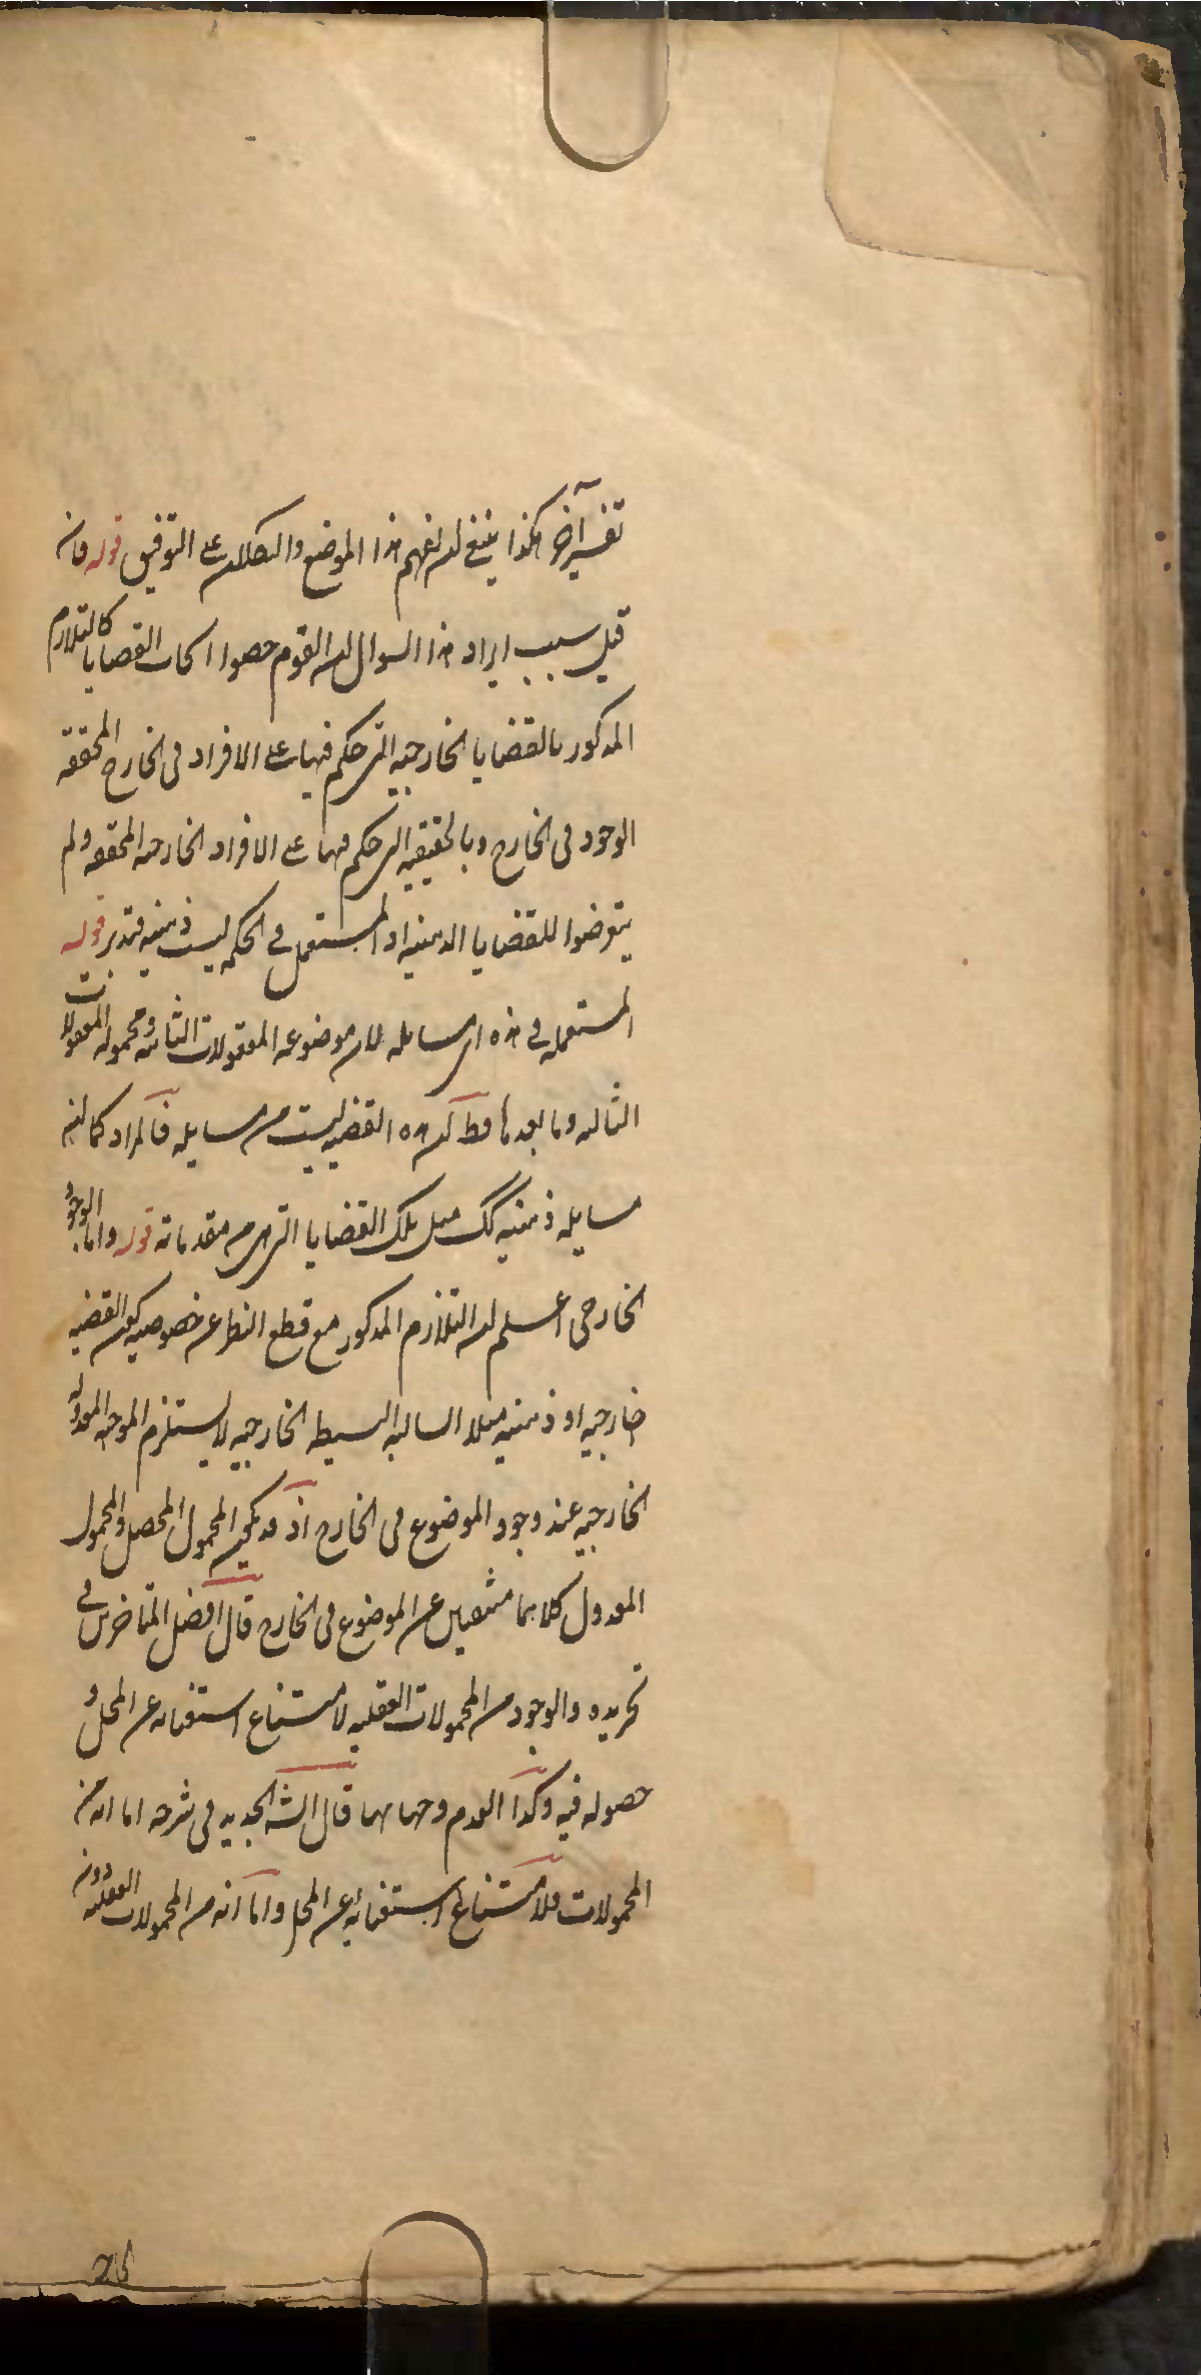 تفسير آخر هكذا ينبغي ان يفهم هذا الموضع والتكلان على التوفيق قوله فان
قيل سبب ايراد هذا السوال ان القوم خصوا احكام القضايا كالتلازم
المذكور بالقضايا الخارجيه التي حكم فيها على الافراد في الخارج المحققة
الوجود في الخارج وبالحقيقيه التي حكم فيها على الافراد الخارجيه المحققه ولم
يتعرضوا للقضايا الذهنيه اذ المستعمل في الحكمه ليست ذهنيه فتدبر قوله
المستعمله في هذه اي مسايله لان موضوعه المعقولات الثانيه ومحموله المعقولات
الثالثه وما بعدها فظ ان هذه القضيه ليست من مسايله فالمراد كما انه
مسايله ذهنيه كك مثل تلك القضايا التي هي من مقدماته قوله واما الوجود
الخارجي اعلم ان التلازم المذكور مع قطع النظر عن خصوصيه كون القضيه
خارجيه او ذهنيه مثلا السالبه البسيطه الخارجيه لا يستلزم الموجبه المعدوله
الخارجيه عند وجود الموضوع في الخارج اذ قد يكون المحمول المحصل والمحمول
المعدول كلاهما منتفيين عن الموضوع في الخارج قال افضل المتاخرين في
تجريده والوجود من المحمولات العقليه لامتناع استغنائه عن المحل و
حصوله فيه وكذا العدم وجهاتهما قال الشه الجديد في شرحه اما انه من
المحمولات فلامتناع استغنائه عن المحل واما انه من المحمولات العقليه دون